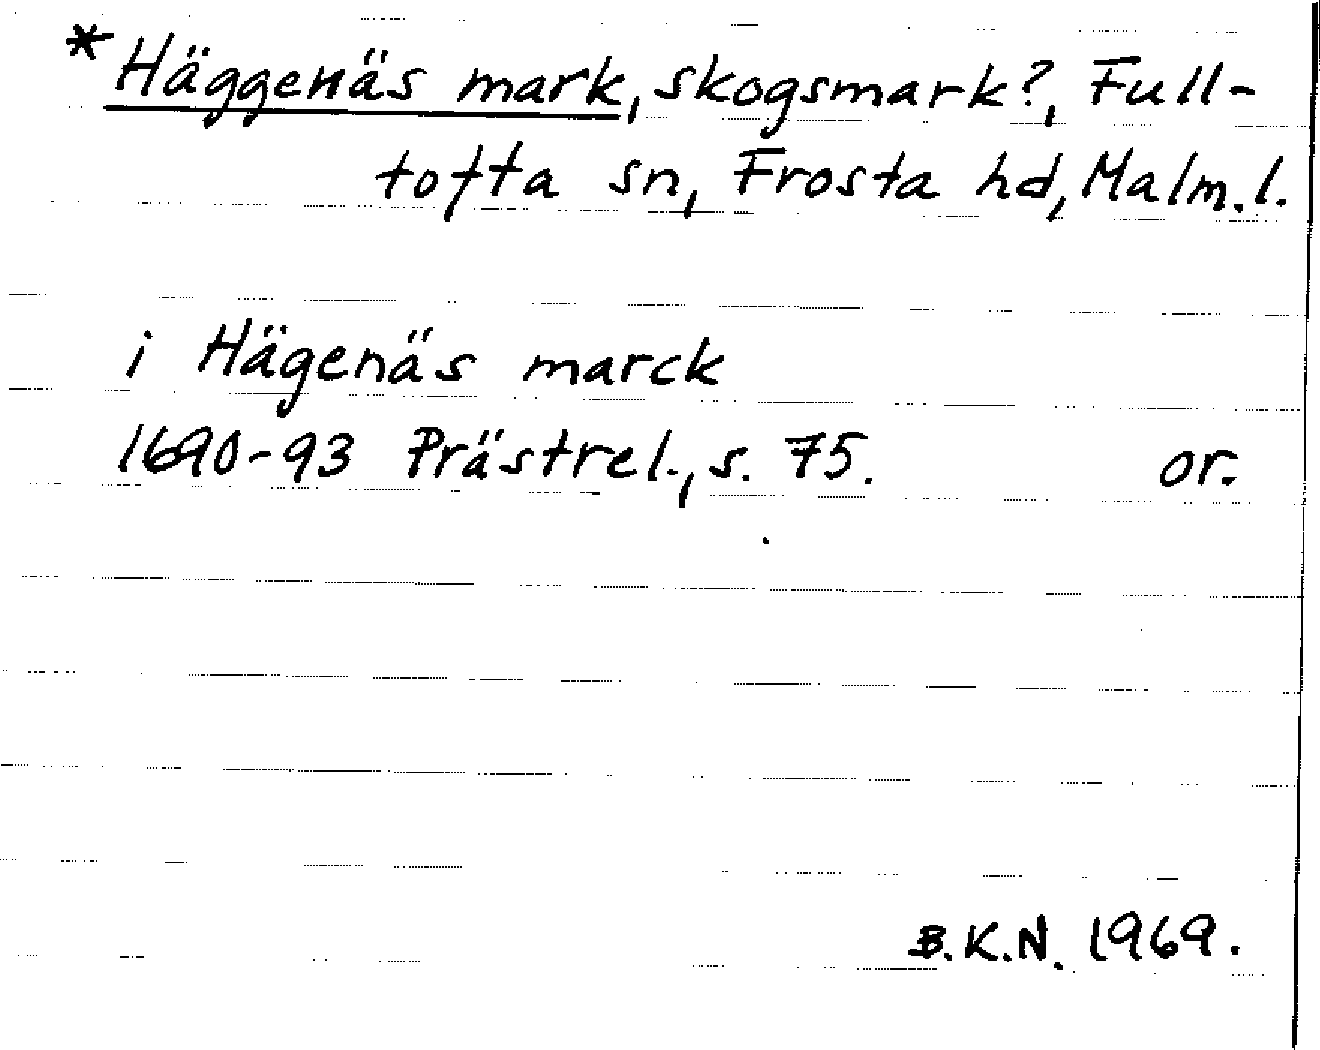 *Häggenäs mark, skogsmark?, Full-
tofta sn, Frosta hd, Malm.l.
i Hägenäs marck
1690-93 Prästrel., s. 75. or.
B.K.N. 1969.